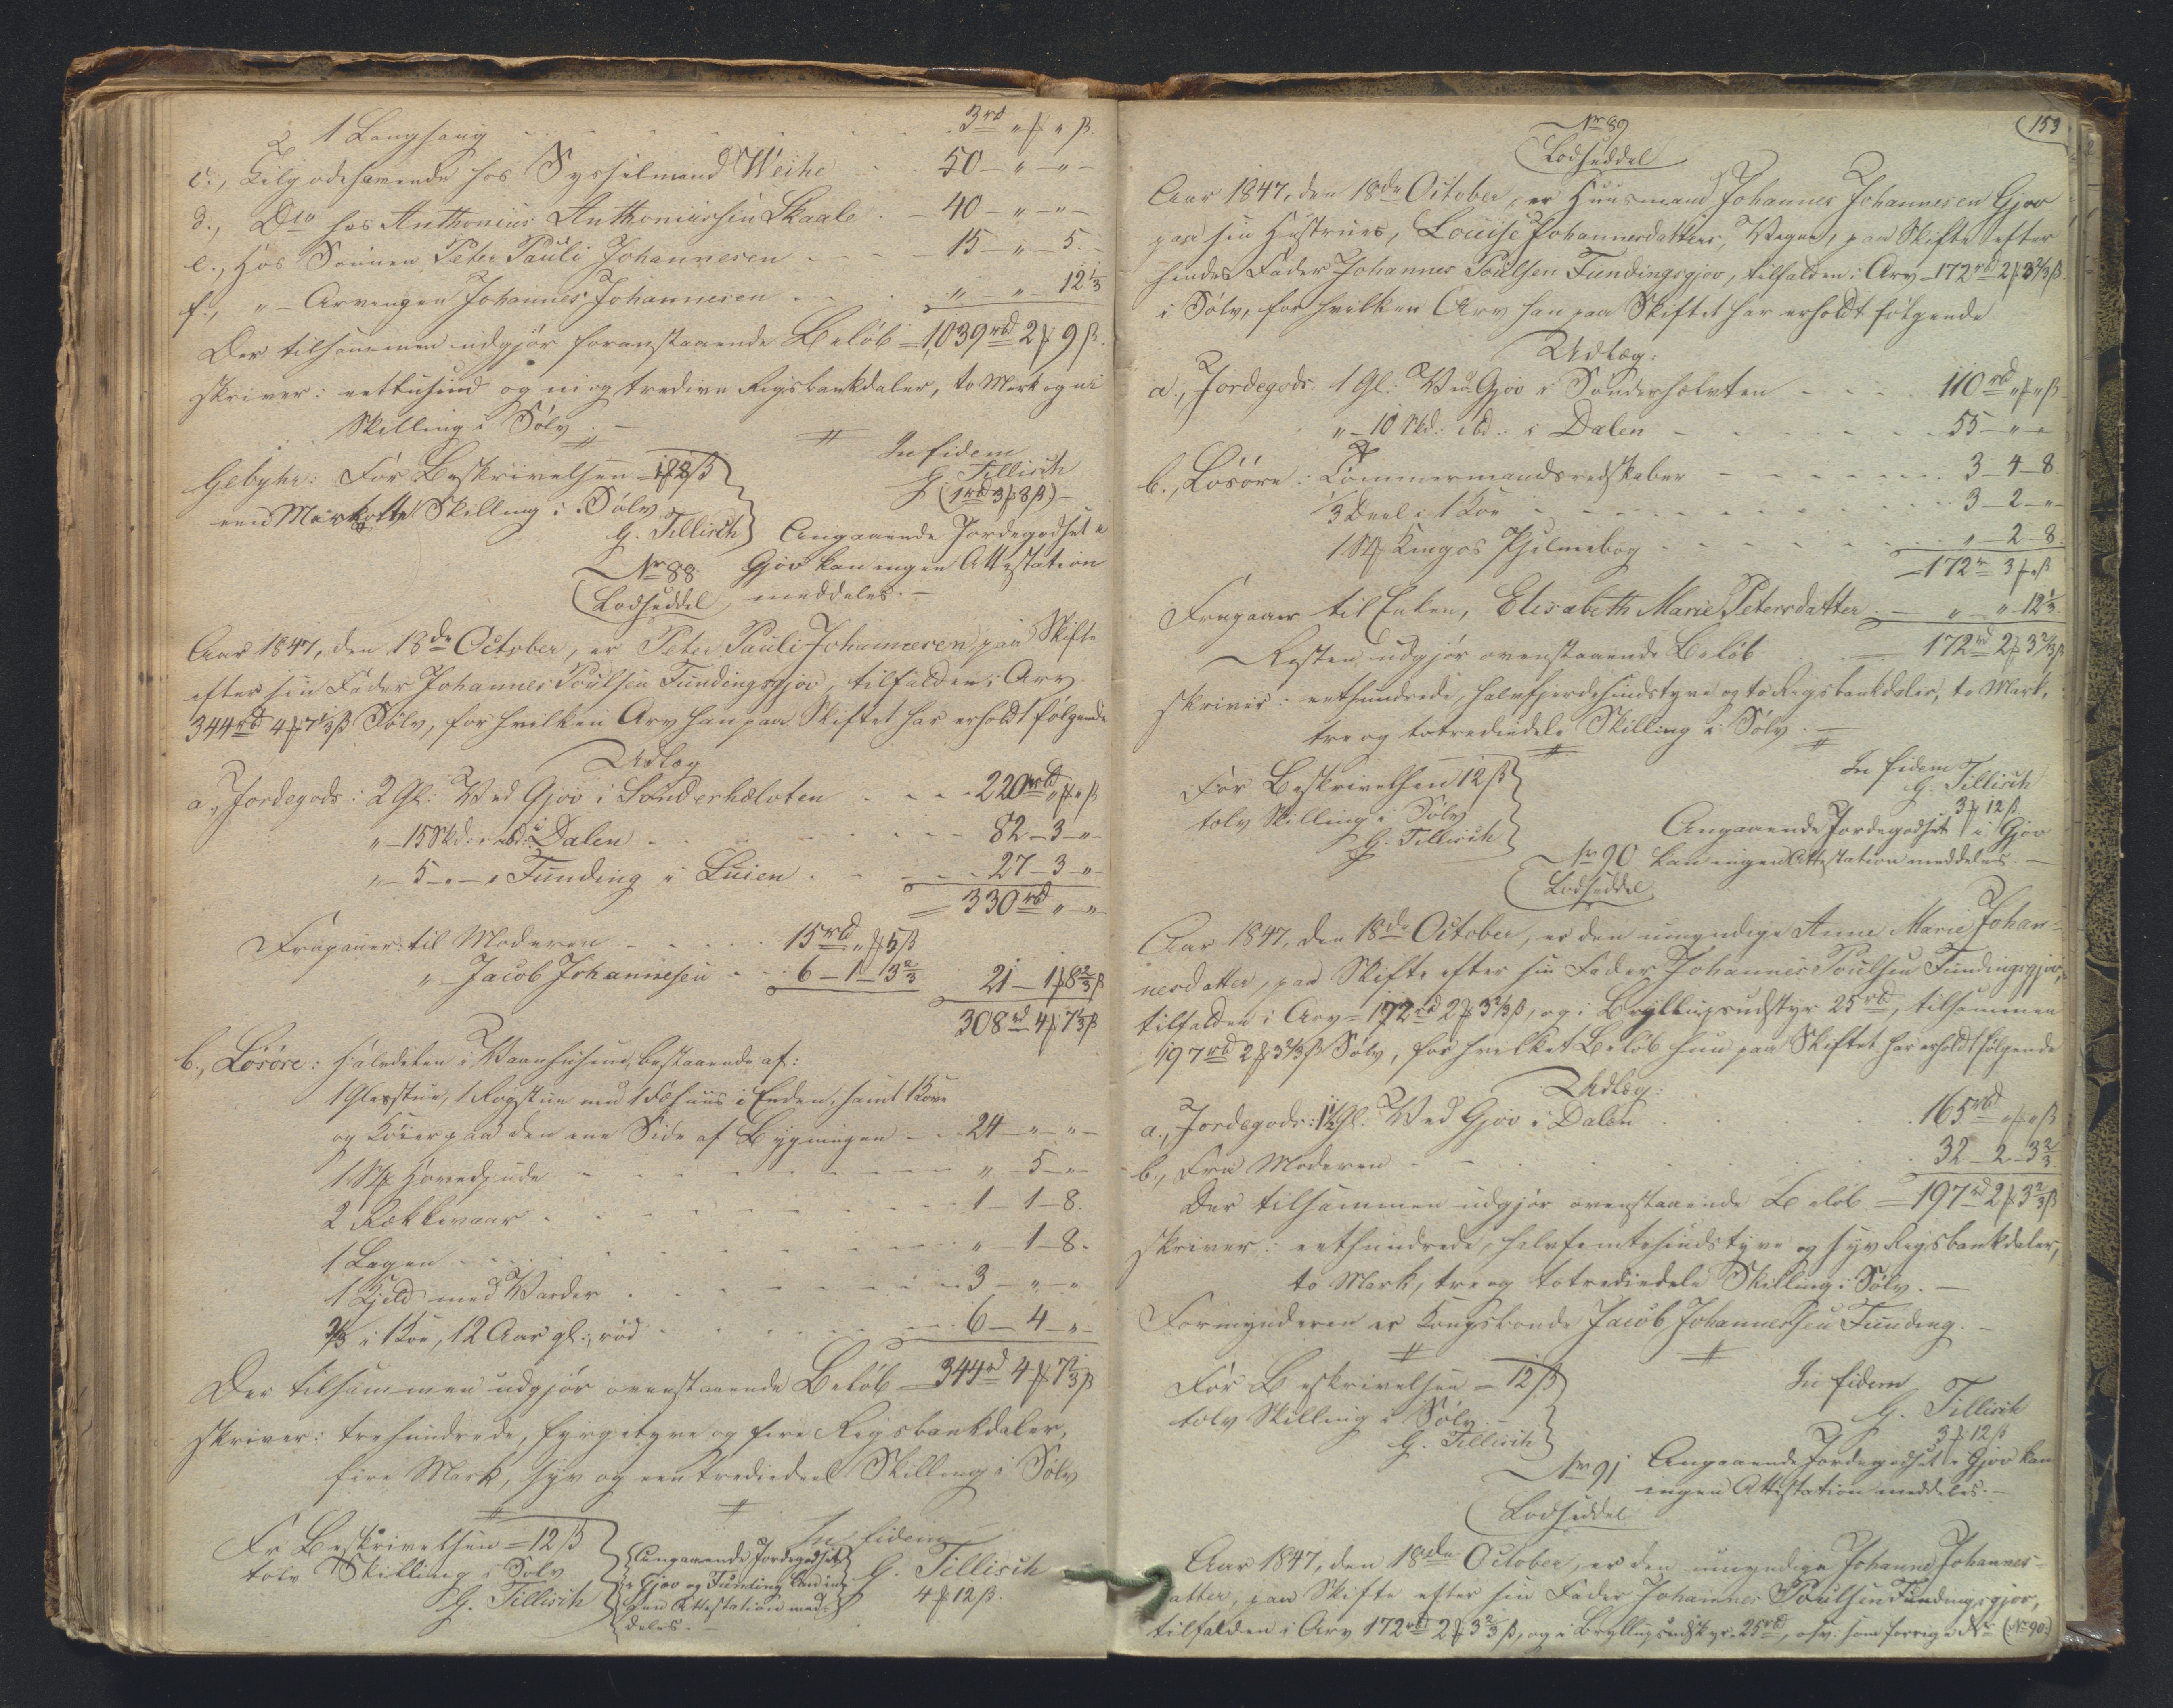 1 Langhang . . . 3 rd „ ƒ „ ß.
c., Tilgodehavende hos Sysselmand Weihe . . 50 – „ – „ –
d., Dto hos Anthonius Anthoniussen Skaale . – 40 – „ – „ –
e., Hos Sønnen Peter Pauli Johannesen . . . 15 – „ – 5. –
f., „ – Arvingen Johannes Johannesen . . . „ – „ – 12 1/3
Der tilsammen udgjør foranstaaende Beløb = 1,039 rbd 2 ƒ 9 ß.
skriver: eettusind og niogtredive Rigsbankdaler, to Mark og ni
Skilling i Sølv. –
In fidem
G. Tillisch
(1 rbd 3 ƒ 8 ß) –
Gebyhr: For Beskrivelsen = 1 ƒ 8 ß
een Mark otte Skilling i Sølv.
G. Tillisch
Angaaende Jordegodset i
Gjov kan ingen Attestation
meddeles. –
No 88.
Lodseddel
Aar 1847, den 18de October, er Peter Pauli Johannesen, paa Skifte
efter sin Fader Johannes Poulsen Fundingsgjov, tilfalden i Arv
344 rbd 4 ƒ 7 1/3 ß Sølv, for hvilken Arv han paa Skiftet har erholdt følgende
Udlæg
a., Jordegods: 2 Gl: Ved Gjov i Sønderhælvten . . . 220 rbd „ ƒ „ ß
„ – 15 Skd: ibd: i Dalen . . . 82 – 3 – „ –
„ – 5 – „ – i Funding i Luien . . . 27 – 3 – „ –
= 330 rbd „ – „ –
Fragaaer: til Moderen . . . 15 rbd „ ƒ 5 ß
„ – Jacob Johannesen . . . 6 – 1 – 3 2/3 21 – 1 ƒ 8 2/3 ß
308 rd 4 ƒ 7 1/3 ß
b., Løsøre: Halvdelen i Vaanhusene, bestaaende af:
1 Glasstue, 1 Rogstue med 1 Fæhuus i Enden, samt 1 Kove
og Køier paa den ene Side af Bygningen . . 24 – „ – „ –
1 Stk Hovedpude . . . „ – 5 – „ –
2 Rækkevaar . . . 1 – 1 – 8.
1 Lagen . . . „ – 1 – 8.
1 Kjeld med Varder . . . 3 – „ – „ –
2/3 i 1 Koe, 12 Aar gl:, rød . . . 6 – 4 – „ –
Der tilsammen udgjør ovenstaaende Beløb = 344 rd 4 ƒ 7 1/3 ß
skriver: trehundrede, fyrgetyve og fire Rigsbankdaler,
fire Mark, syv og een trediedeel Skilling i Sølv
Fr Beskrivelsen = 12 ß
tolv Skilling i Sølv
G. Tillisch
Angaaende Jordegodset
i Gjov og Funding kan in-
gen Attestation med-
deles. –
In fidem
G. Tillisch
4 ƒ 12 ß.
153
No 89
Lodseddel
Aar 1847, den 18de October, er Huusmand Johannes Johannesen Gjov
paa sin Hustrues, Louise Johannesdatters, Vegne, paa Skifte efter
hendes Fader Johannes Poulsen Fundingsgjov, tilfalden i Arv = 172 rbd 2 ƒ 3 2/3 ß
i Sølv, for hvilken Arv han paa Skiftet har erholdt følgende
Udlæg:
a., Jordegods. 1 Gl: Ved Gjov i Sønderhælvten . . . 110 rbd „ ƒ „ ß
„ – 10 Skd: ibd: i Dalen . . . 55 – „ – „
b., Løsøre: Tømmermandsredskaber . . . 3 – 4 – 8
1/3 Deel i 1 Koe . . . 3 – 2 – „ –
1 Stk Kingos Psalmebog . . . „ – 2 – 8.
= 172 rd 3 ƒ „ ß
Fragaaer til Enken, Elisabeth Marie Petersdatter . – „ – „ – 12 1/3
Resten udgjør ovenstaaende Beløb . . . 172 rd 2 ƒ 3 2/3 ß
skriver: eethundrede, halvfjerdesindstyve og to Rigsbankdaler, to Mark,
tre og totrediedele Skilling i Sølv. –
For Beskrivelsen 12 ß
tolv Skilling i Sølv
G. Tillisch
In fidem
G. Tillisch
3 ƒ 12 ß
Angaaende Jordegodset i Gjov
kan ingen Attestation meddeles. –
No 90
Lodseddel
Aar 1847, den 18de October, er den umyndige Anne Marie Johan-
nesdatter, paa Skifte efter sin Fader Johannes Poulsen Fundingsgjov,
tilfalden i Arv = 172 rd 2 ƒ 3 2/3 ß, og i Bryllupsudstyr 25 rbd, tilsammen
197 rbd 2 ƒ 3 2/3 ß Sølv, for hvilket Beløb hun paa Skiftet har erholdt følgende
Udlæg:
a., Jordegods: 1 1/2 Gl. Ved Gjov i Dalen . . . 165 rbd „ ƒ „ ß
b., Fra Moderen . . . 32 – 2 – 3 2/3
Der tilsammen udgjør ovenstaaende Beløb = 197 rd 2 ƒ 3 2/3 ß
skriver: eethundrede, halvfemtesindstyve og syv Rigsbankdaler,
to Mark, tre og totrediedele Skilling i Sølv. –
Formynderen er Kongsbonde Jacob Johannessen Funding. –
For Beskrivelsen = 12 ß
tolv Skilling i Sølv. –
G. Tillisch
In fidem
G. Tillisch
3 ƒ 12 ß
Angaaende Jordegodset i Gjov kan
ingen Attestation meddeles. –
No 91
Lodseddel
Aar 1847, den 18de October, er den umyndige Johanne Johannes-
datter, paa Skifte efter sin Fader Johannes Poulsen Fundingsgjov,
tilfalden i Arv 172 rbd 2 ƒ 3 2/3 ß, og i Bryllupsudstyr 25 rbd, osv: som forrige No (No 90:)